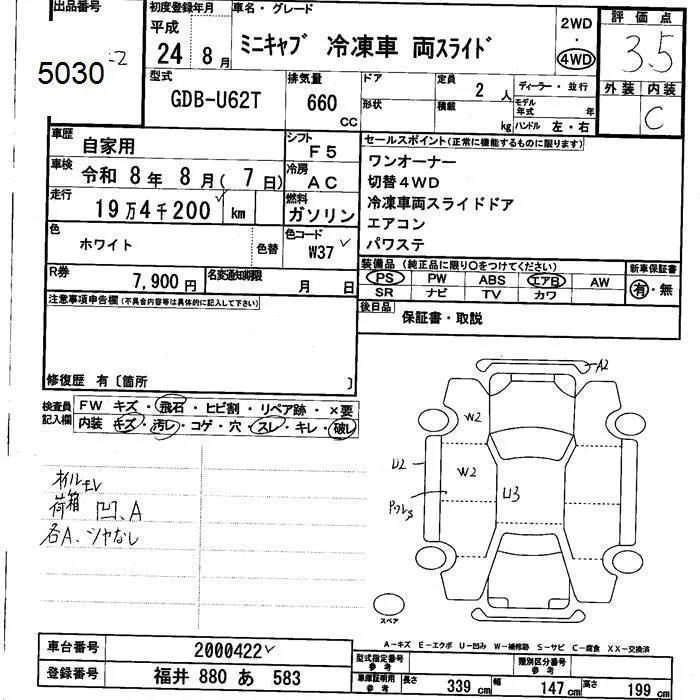 出品番号
5030
初度登録年月
平成
24 8月
車名・グレード
ミニキャブ 冷凍車 両スライド
2WD
・
4WD
評価点
3.5
外装 内装
C
型式
GDB-U62T
排気量
660
CC
ドア
形状
定員
2人
積載
kg
ディーラー・並行
モデル年式 年
ハンドル 左・右
車歴
自家用
シフト
F5
車検
令和 8年 8月( 7日)
冷房
AC
走行
19万4千200 km
燃料
ガソリン
色
ホワイト
色替
色コード
W37
R券
7,900円
名変通知期限
月 日
セールスポイント(正常に機能するものに限ります)
ワンオーナー
切替4WD
冷凍車両スライドドア
エアコン
パワステ
装備品(純正品に限り○をつけてください)
PS PW ABS エアB AW
SR ナビ TV カワ
新車保証書
有・無
後日品
保証書・取説
注意事項申告欄(不具合内容等は具体的に記入して下さい)
修復歴 有〔箇所 〕
検査員記入欄
FW キズ・飛石・ヒビ割・リペア跡・×要
内装 キズ・汚レ・コゲ・穴・スレ・キレ・破レ
オイルモレ
荷箱 凹、A
各A、シャなし
A2
W2
U2
W2
U3
スペア
A−キズ E−エクボ U−凹み W−補修跡 S−サビ C−腐食 XX−交換済
車台番号
2000422
登録番号
福井 880 あ 583
型式指定番号
参考
類別区分番号
参考
車庫証明用
参考
長さ 339cm 幅 147cm 高さ 199cm